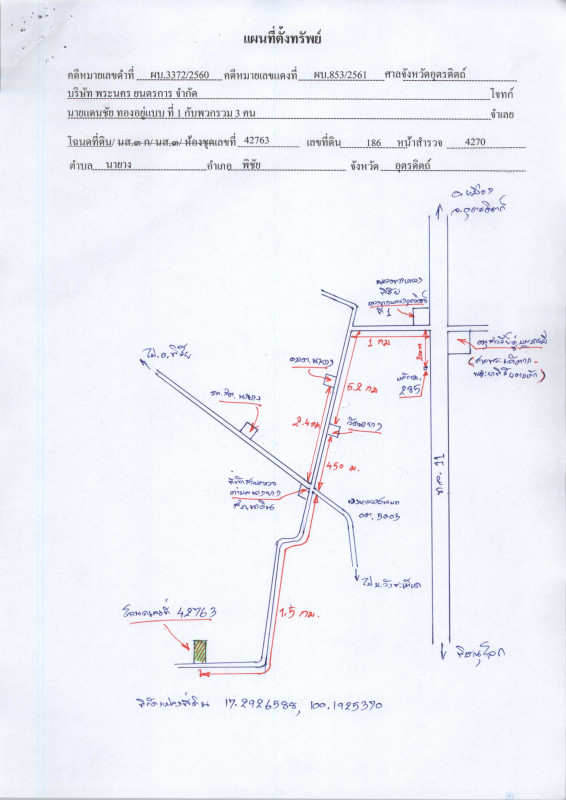 แผนที่ตั้งทรัพย์
คดีหมายเลขดำที่ ผบ.3372/2560 คดีหมายเลขแดงที่ ผบ.853/2561 ศาลจังหวัดอุตรดิตถ์
บริษัท พระนคร ยนตรการ จำกัด โจทก์
นายแดนชัย ทองอยู่แบบ ที่ 1 กับพวกรวม 3 คน จำเลย
โฉนดที่ดิน/ นส.๓ ก/ นส.๓/ ห้องชุดเลขที่ 42763 เลขที่ดิน 186 หน้าสำรวจ 4270
ตำบล นายาง อำเภอ พิชัย จังหวัด อุตรดิตถ์
อ.เมือง
จ.อุตรดิตถ์
พิชัย
ที่ 1
1 กม
200ม
หลักกม.
285
ไป อ.พิชัย
รพ.สต. นายาง
อบต. นายาง
5.2 กม
2.4กม
วัดนายาง
450 ม.
ทล. 11
อต. 5003
1.5 กม.
โฉนดเลขที่ 42763
พิษณุโลก
พิกัดแปลงที่ดิน 17.2926588, 100.1925370